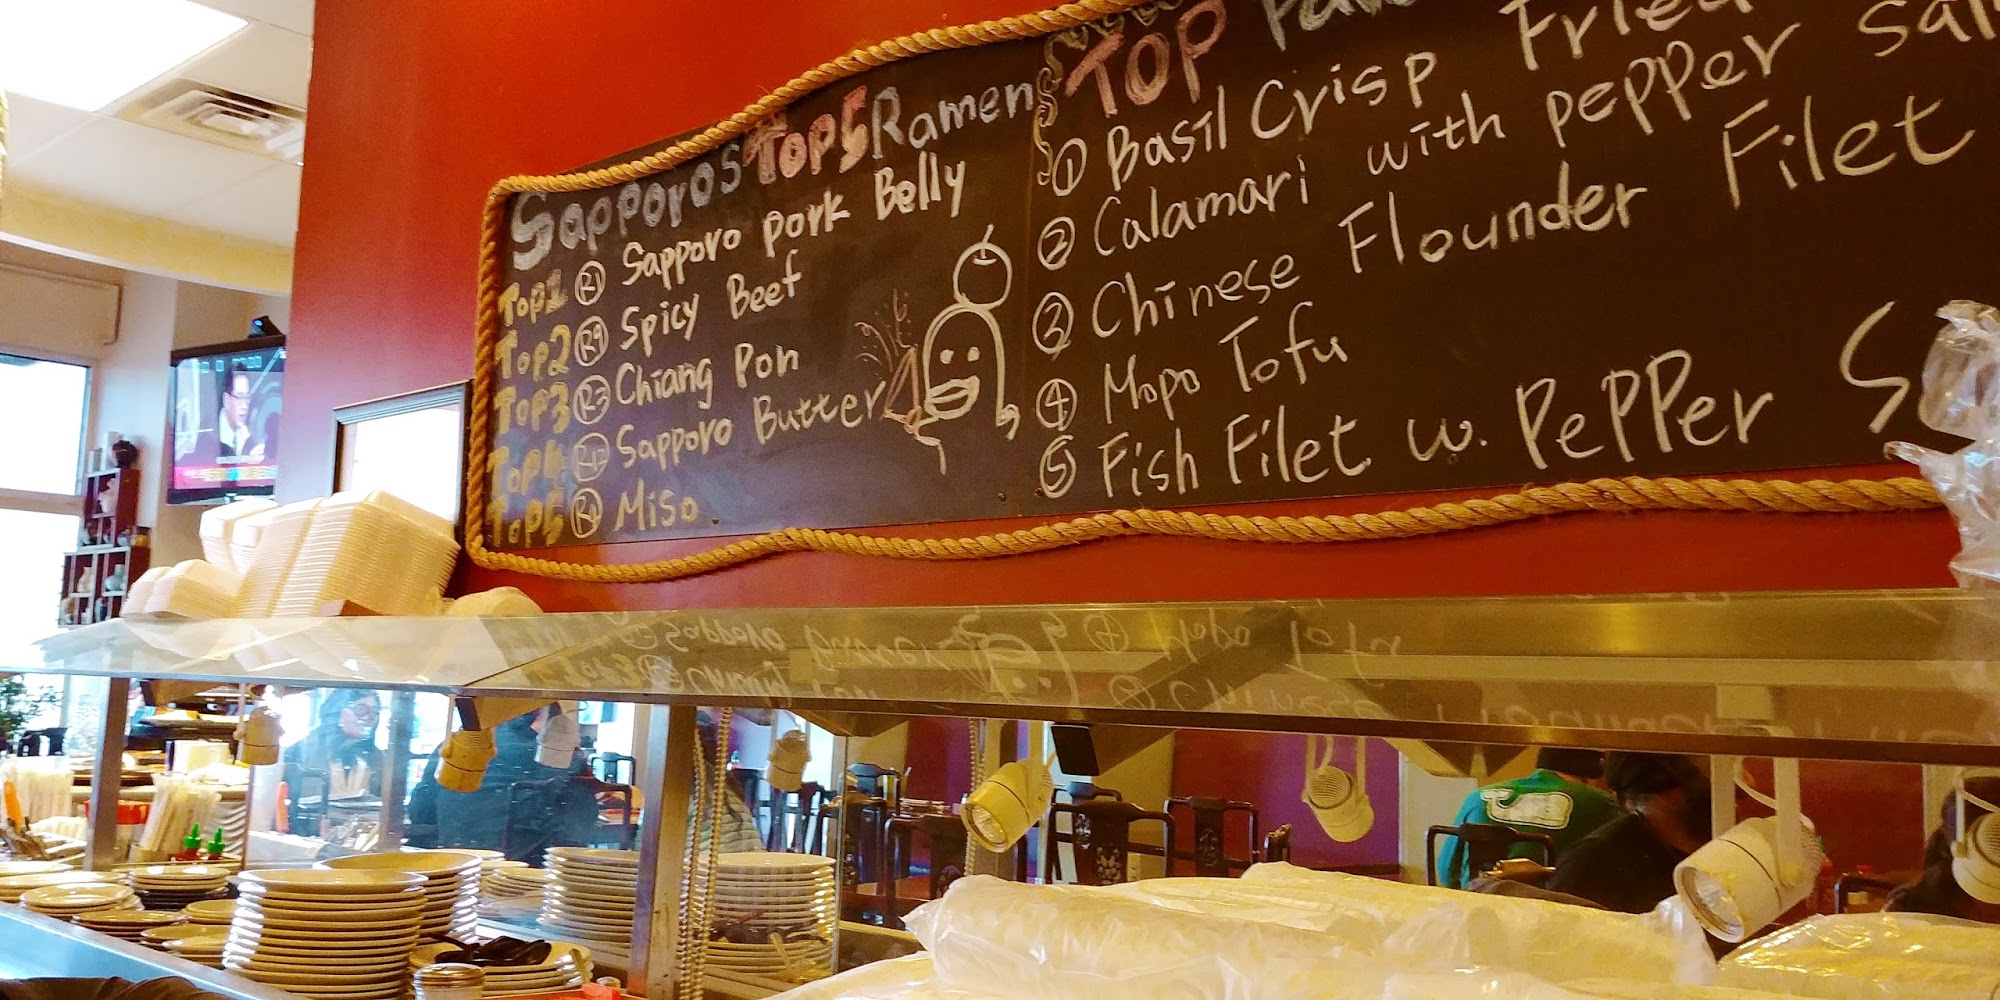 Sapporo's Top 5 Ramen
Top1 R1 Sapporo pork Belly
Top2 R9 Spicy Beef
Top3 R3 Chiang Pon
Top4 R12 Sapporo Butter
Top5 R4 Miso
TOP
① Basil Crisp Fried
② Calamari with pepper Sal
③ Chinese Flounder Filet
④ Mapo Tofu
⑤ Fish Filet w. PePPer